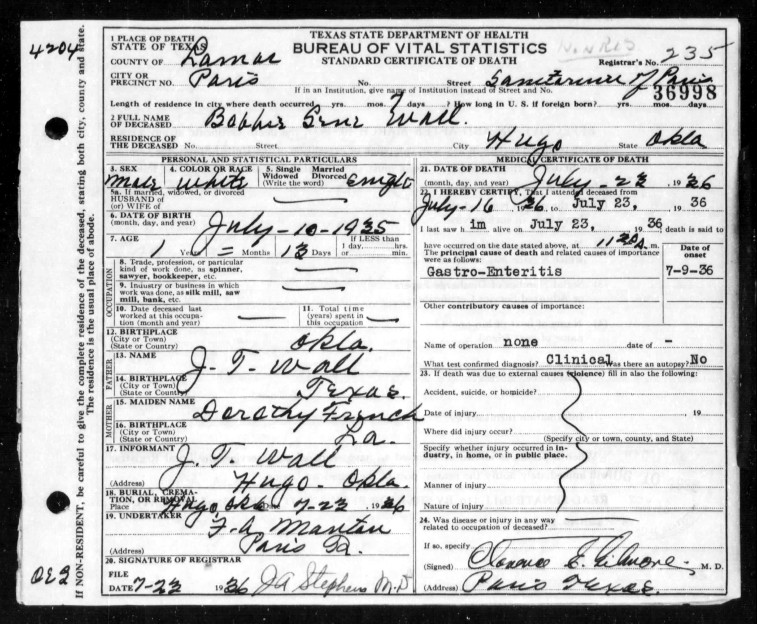 TEXAS STATE DEPARTMENT OF HEALTH
BUREAU OF VITAL STATISTICS
STANDARD CERTIFICATE OF DEATH
4204
1 PLACE OF DEATH
STATE OF TEXAS
COUNTY OF Lamar
Registrar's No. 235
CITY OR
PRECINCT NO. Paris No. Street Sanitarium of Paris
If in an Institution, give name of Institution instead of Street and No.
36998
Length of residence in city where death occurred yrs. mos. 7 days ? How long in U. S. if foreign born? yrs. mos. days
2 FULL NAME
OF DECEASED Bobbie Gene Wall.
RESIDENCE OF
THE DECEASED No. Street City Hugo State Okla
If NON-RESIDENT, be careful to give the complete residence of the deceased, stating both city, county and state.
The residence is the usual place of abode.
PERSONAL AND STATISTICAL PARTICULARS
3. SEX
Male
4. COLOR OR RACE
White
5. Single Married
Widowed Divorced
(Write the word) Single
5a. If married, widowed, or divorced
HUSBAND of
(or) WIFE of
6. DATE OF BIRTH
(month, day, and year) July-10-1935
7. AGE
1 Years = Months 13 Days
If LESS than
1 day, hrs.
or min.
OCCUPATION
8. Trade, profession, or particular
kind of work done, as spinner,
sawyer, bookkeeper, etc.
9. Industry or business in which
work was done, as silk mill, saw
mill, bank, etc.
10. Date deceased last
worked at this occupation
(month and year)
11. Total time
(years) spent in
this occupation
12. BIRTHPLACE
(City or Town)
(State or Country) Okla.
FATHER
13. NAME J. T. Wall
14. BIRTHPLACE
(City or Town)
(State or Country) Texas.
MOTHER
15. MAIDEN NAME Dorothy French
16. BIRTHPLACE
(City or Town)
(State or Country) La.
17. INFORMANT J. T. Wall
(Address) Hugo. Okla.
18. BURIAL, CREMATION,
OR REMOVAL
Place Hugo, Okla Date 7-23 1936
19. UNDERTAKER F. A. Manton
(Address) Paris
20. SIGNATURE OF REGISTRAR
FILE
DATE 7-23 1936 J A Stephens M.D
MEDICAL CERTIFICATE OF DEATH
21. DATE OF DEATH
(month, day, and year) July 23 1936
22. I HEREBY CERTIFY, That I attended deceased from
July-16 1936 to July 23, 1936
I last saw him alive on July 23, 1936 death is said to
have occurred on the date stated above, at 11 30 A. m.
The principal cause of death and related causes of importance
were as follows:
Date of
onset
Gastro-Enteritis 7-9-36
Other contributory causes of importance:
Name of operation none date of -
What test confirmed diagnosis? Clinical Was there an autopsy? No
23. If death was due to external causes (violence) fill in also the following:
Accident, suicide, or homicide?
Date of injury , 19
Where did injury occur?
(Specify city or town, county, and State)
Specify whether injury occurred in industry,
in home, or in public place.
Manner of injury
Nature of injury
24. Was disease or injury in any way
related to occupation of deceased?
If so, specify
(Signed) Clarence E. Gilmore. M. D.
(Address) Paris Texas.